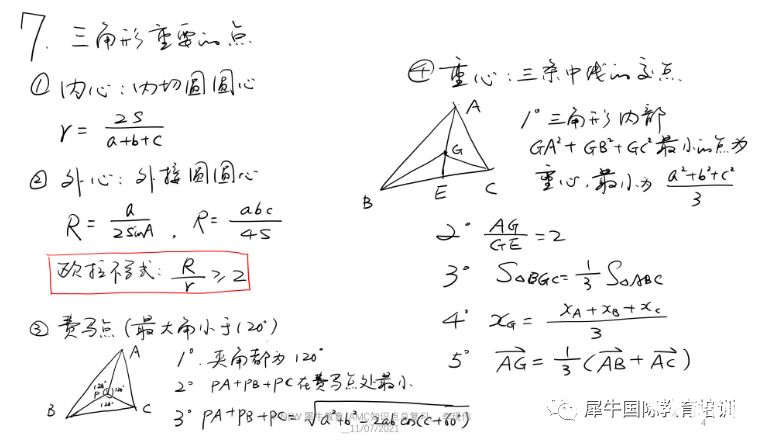 7. 三角形重要的点
① 内心：内切圆圆心
r = 2S / (a+b+c)
② 外心：外接圆圆心
R = a / 2sinA , R = abc / 4S
欧拉不等式: R/r ≥ 2
③ 费马点 (最大角小于120°)
A
B
C
P
120°
120°
120°
1° 夹角都为120°
2° PA+PB+PC在费马点处最小
3° PA+PB+PC = √(a²+b²-2ab cos(C+60°))
④ 重心：三条中线的交点
A
B
C
G
E
1° 三角形内部
GA²+GB²+GC²最小的点为
重心，最小为 (a²+b²+c²) / 3
2° AG/GE = 2
3° S△BGC = 1/3 S△ABC
4° x_G = (x_A+x_B+x_C) / 3
5° AG = 1/3 (AB + AC)
犀牛国际教育培训
犀牛教育 AMC知识点总复习
11/07/2021
4